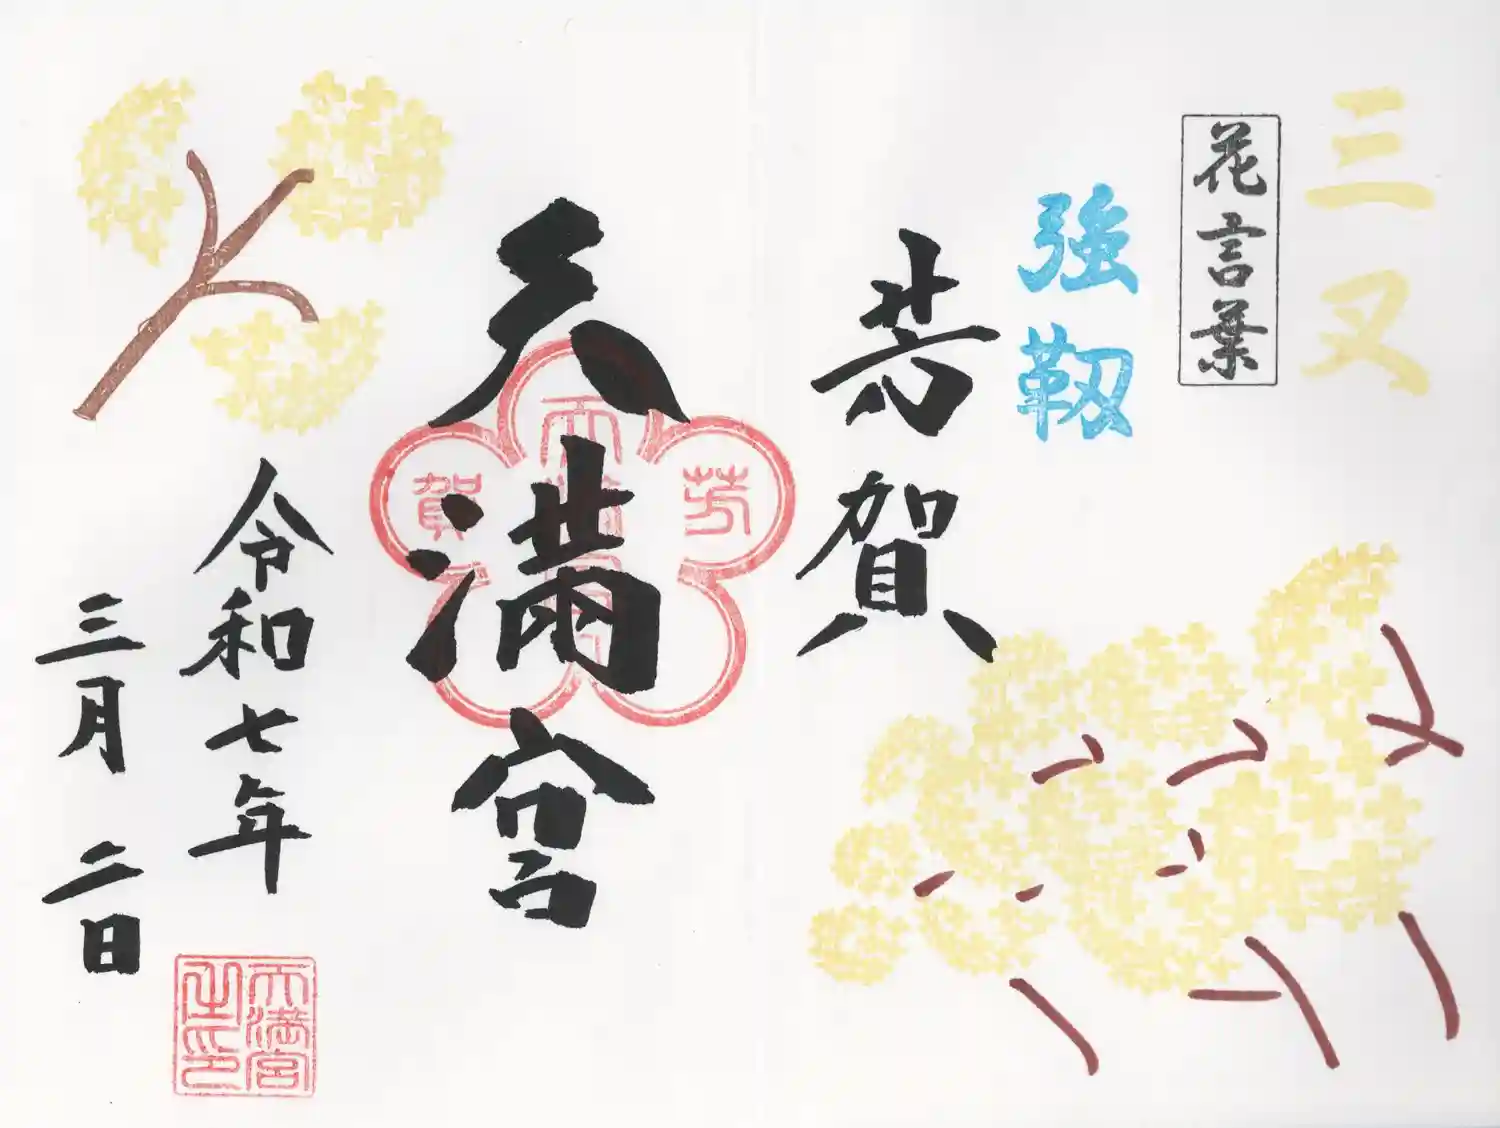 三叉
花言葉
強靱
芳賀
天満宮
芳
天満宮
賀
令和七年
三月二日
天満宮
之印